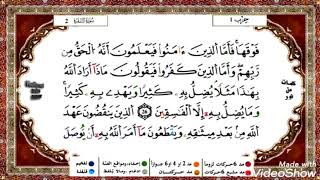 حزب ١
سورة البقرة 2
فَوْقَهَا فَأَمَّا الَّذِينَ ءَامَنُوا فَيَعْلَمُونَ أَنَّهُ الْحَقُّ مِن
رَّبِّهِمْ وَأَمَّا الَّذِينَ كَفَرُوا فَيَقُولُونَ مَاذَا أَرَادَ اللَّهُ
بِهَٰذَا مَثَلًا يُضِلُّ بِهِ كَثِيرًا وَيَهْدِي بِهِ كَثِيرًا
وَمَا يُضِلُّ بِهِ إِلَّا الْفَاسِقِينَ ٢٦ الَّذِينَ يَنقُضُونَ عَهْدَ
اللَّهِ مِنْ بَعْدِ مِيثَاقِهِ وَيَقْطَعُونَ مَا أَمَرَ اللَّهُ بِهِ أَن يُوصَلَ
Made with
VideoShow